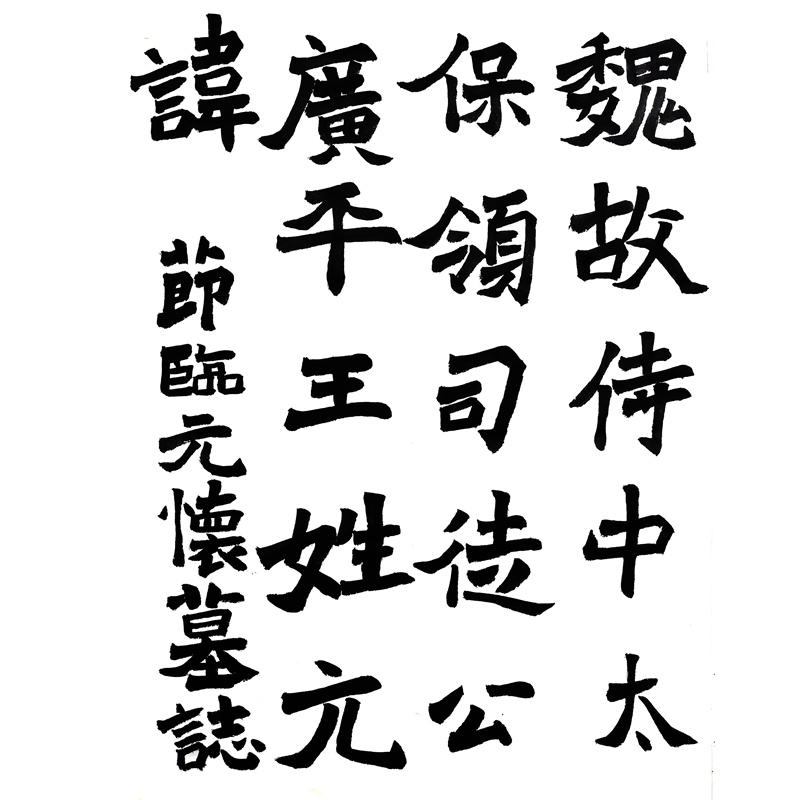 魏故侍中太
保領司徒公
廣平王姓元
諱
節臨元懷墓誌